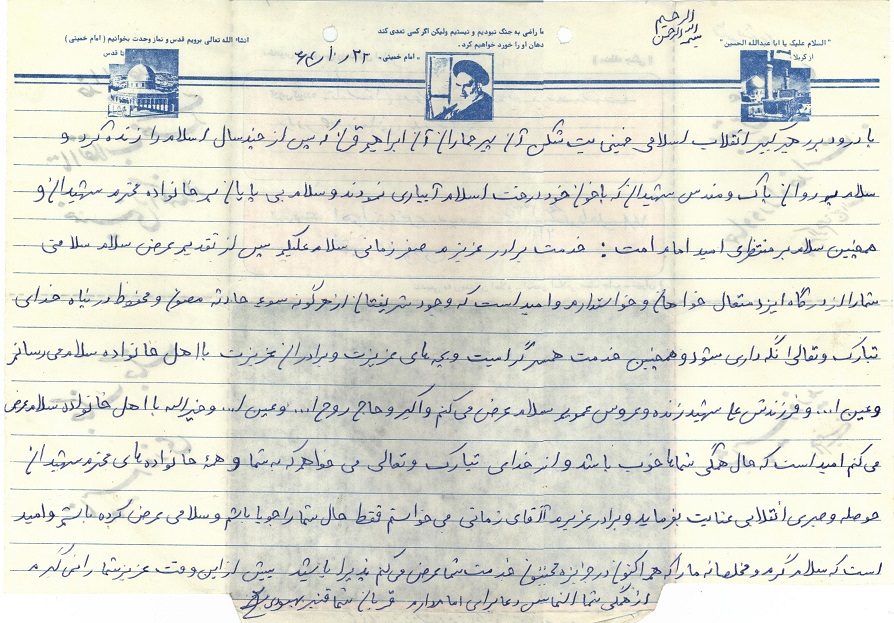 بسم الله الرحمن الرحیم
"السلام علیک یا ابا عبدالله الحسین"
از کربلا
ما راضی به جنگ نبودیم و نیستیم ولیکن اگر کسی تعدی کند
دهان او را خورد خواهیم کرد.
"امام خمینی"
انشاء الله تعالی برویم قدس و نماز وحدت بخوانیم (امام خمینی)
تا قدس
با درود بر رهبر کبیر انقلاب اسلامی خمینی بت شکن آن پیر جماران آن ابراهیم که پس از چند سال اسلام را زنده کرد و
سلام بر روان پاک و مقدس شهیدان که با خون خود درخت اسلام آبیاری نمودند و سلام بی پایان بر خانواده محترم شهیدان و
همچنین سلام بر منتظری امید امام امت: خدمت برادر عزیزم صفر زمانی سلام علیکم پس از تقدیم عرض سلام سلامتی
شما را از درگاه ایزد متعال خواهان و خواستارم و امید است که وجود شریفتان از هرگونه سوء حادثه مصون و محفوظ در پناه خدای
تبارک و تعالی نگه داری شود و همچنین خدمت همسر گرامیت و بچه های عزیزت و برادران عزیزت با اهل خانواده سلام می رسانم
و عین ا... و فرزندش شهید زنده و عروس عمویم سلام عرض می کنم و اکبر و حاج روح ا... و عین ا... و خیراله با اهل خانواده سلام عرض
می کنم امید است که حال همگی شماها خوب باشد و از خدای تبارک و تعالی می خواهم که به شما و همهٔ خانواده های محترم شهیدان
حوصله و صبری انقلابی عنایت بفرماید و برادر عزیزم آقای زمانی می خواستم فقط حال شما را جویا باشم و سلامی عرض کرده باشم و امید
است که سلام گرم و مخلصانه ما را که هم اکنون در جزایر مجنون خدمت شما عرض می کنم پذیرا باشید بیش از این وقت عزیز شما را نمی گیرم
از همگی شما التماس دعا برای امام دارم قربان شما قنبر بهبودی